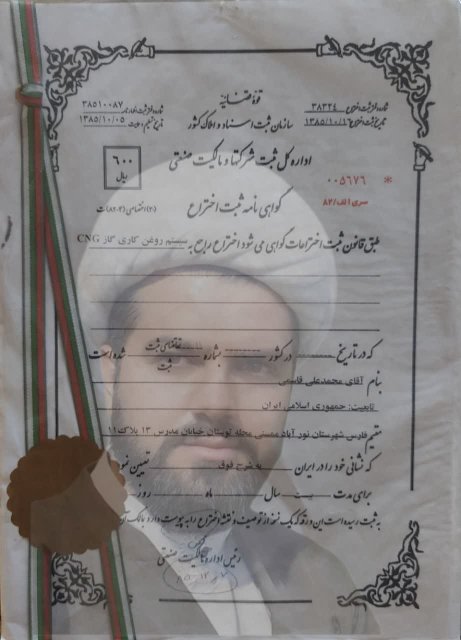 قوهٔ قضائیه
شماره ثبت اختراع ۳۸۳۲۴
شماره ثبت اظهارنامه ۳۸۵۱۰۰۸۷
سازمان ثبت اسناد و املاک کشور
تاریخ ثبت اختراع ۱۳۸۵/۱۰/۱۶
۱۳۸۵/۱۰/۰۵
اداره کل ثبت شرکتها و مالکیت صنعتی
۶۰۰
ریال
* ۰۰۵۶۷۶
سری الف/۸۲
گواهی نامه ثبت اختراع
طبق قانون ثبت اختراعات گواهی می شود اختراع راجع به سیستم روغن کاری گاز CNG
که در تاریخ -------- در کشور -------- بشماره -------- تقاضای ثبت شده است
ثبت
بنام آقای محمدعلی قاسمی
تابعیت: جمهوری اسلامی ایران
مقیم فارس شهرستان نور آباد ممسنی محله توستان خیابان مدرس ۱۳ پلاک ۱۱
که نشانی خود را در ایران به شرح فوق تعیین نمو
برای مدت بیست سال ماه روز
به ثبت رسیده است این ورقه که یک نسخه از توصیف و نقشه اختراع را به پیوست دارد مالک آن
رئیس اداره مالکیت صنعتی